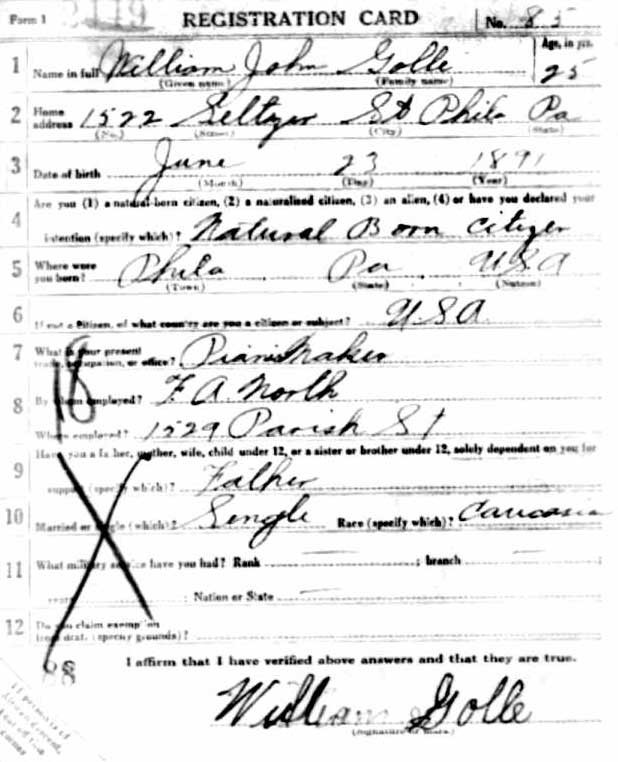 Form 1 2119 REGISTRATION CARD No. 85
1 Name in full William John Golle Age, in yrs. 25
(Given name) (Family name)
2 Home address 1522 Seltzer St Phila Pa
(No.) (Street) (City) (State)
3 Date of birth June 23 1891
(Month) (Day) (Year)
4 Are you (1) a natural-born citizen, (2) a naturalized citizen, (3) an alien, (4) or have you declared your
intention (specify which)? Natural Born citizen
5 Where were you born? Phila Pa USA
(Town) (State) (Nation)
6 If not a citizen, of what country are you a citizen or subject? USA
7 What is your present trade, occupation, or office? Piano Maker
8 By whom employed? F A North
Where employed? 1529 Parish St
9 Have you a father, mother, wife, child under 12, or a sister or brother under 12, solely dependent on you for
support (specify which)? Father
10 Married or single (which)? Single Race (specify which)? Caucasia
11 What military service have you had? Rank ; branch
years ; Nation or State
12 Do you claim exemption from draft (specify grounds)?
18
88
I affirm that I have verified above answers and that they are true.
William Golle
(Signature or mark)
If person is of African descent, tear off this corner